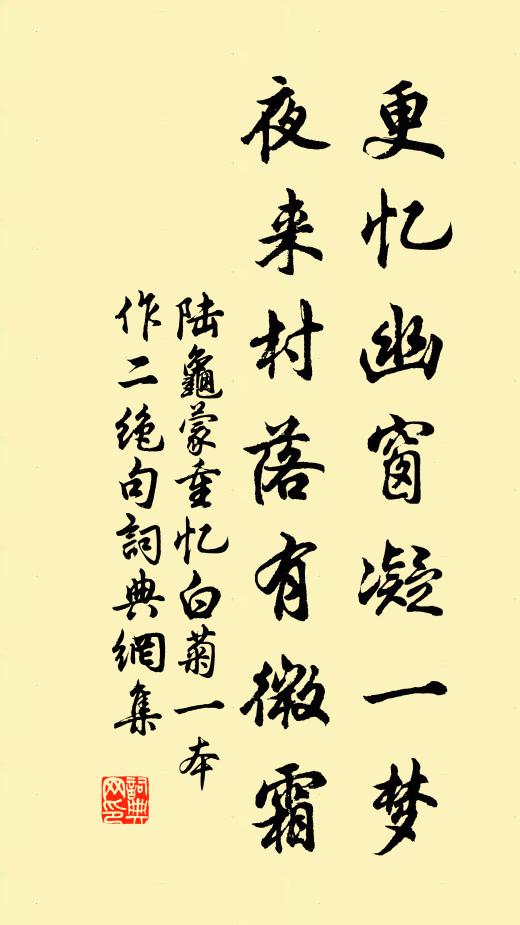 更忆幽窗凝一梦
夜来村落有微霜
陆龜蒙重忆白菊一本
作二绝句詞典網集
詞典
网印